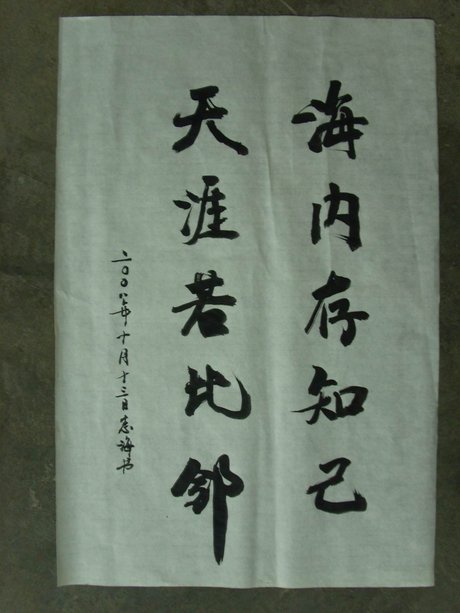 海内存知己
天涯若比邻
二〇〇八年十月十三日志海书